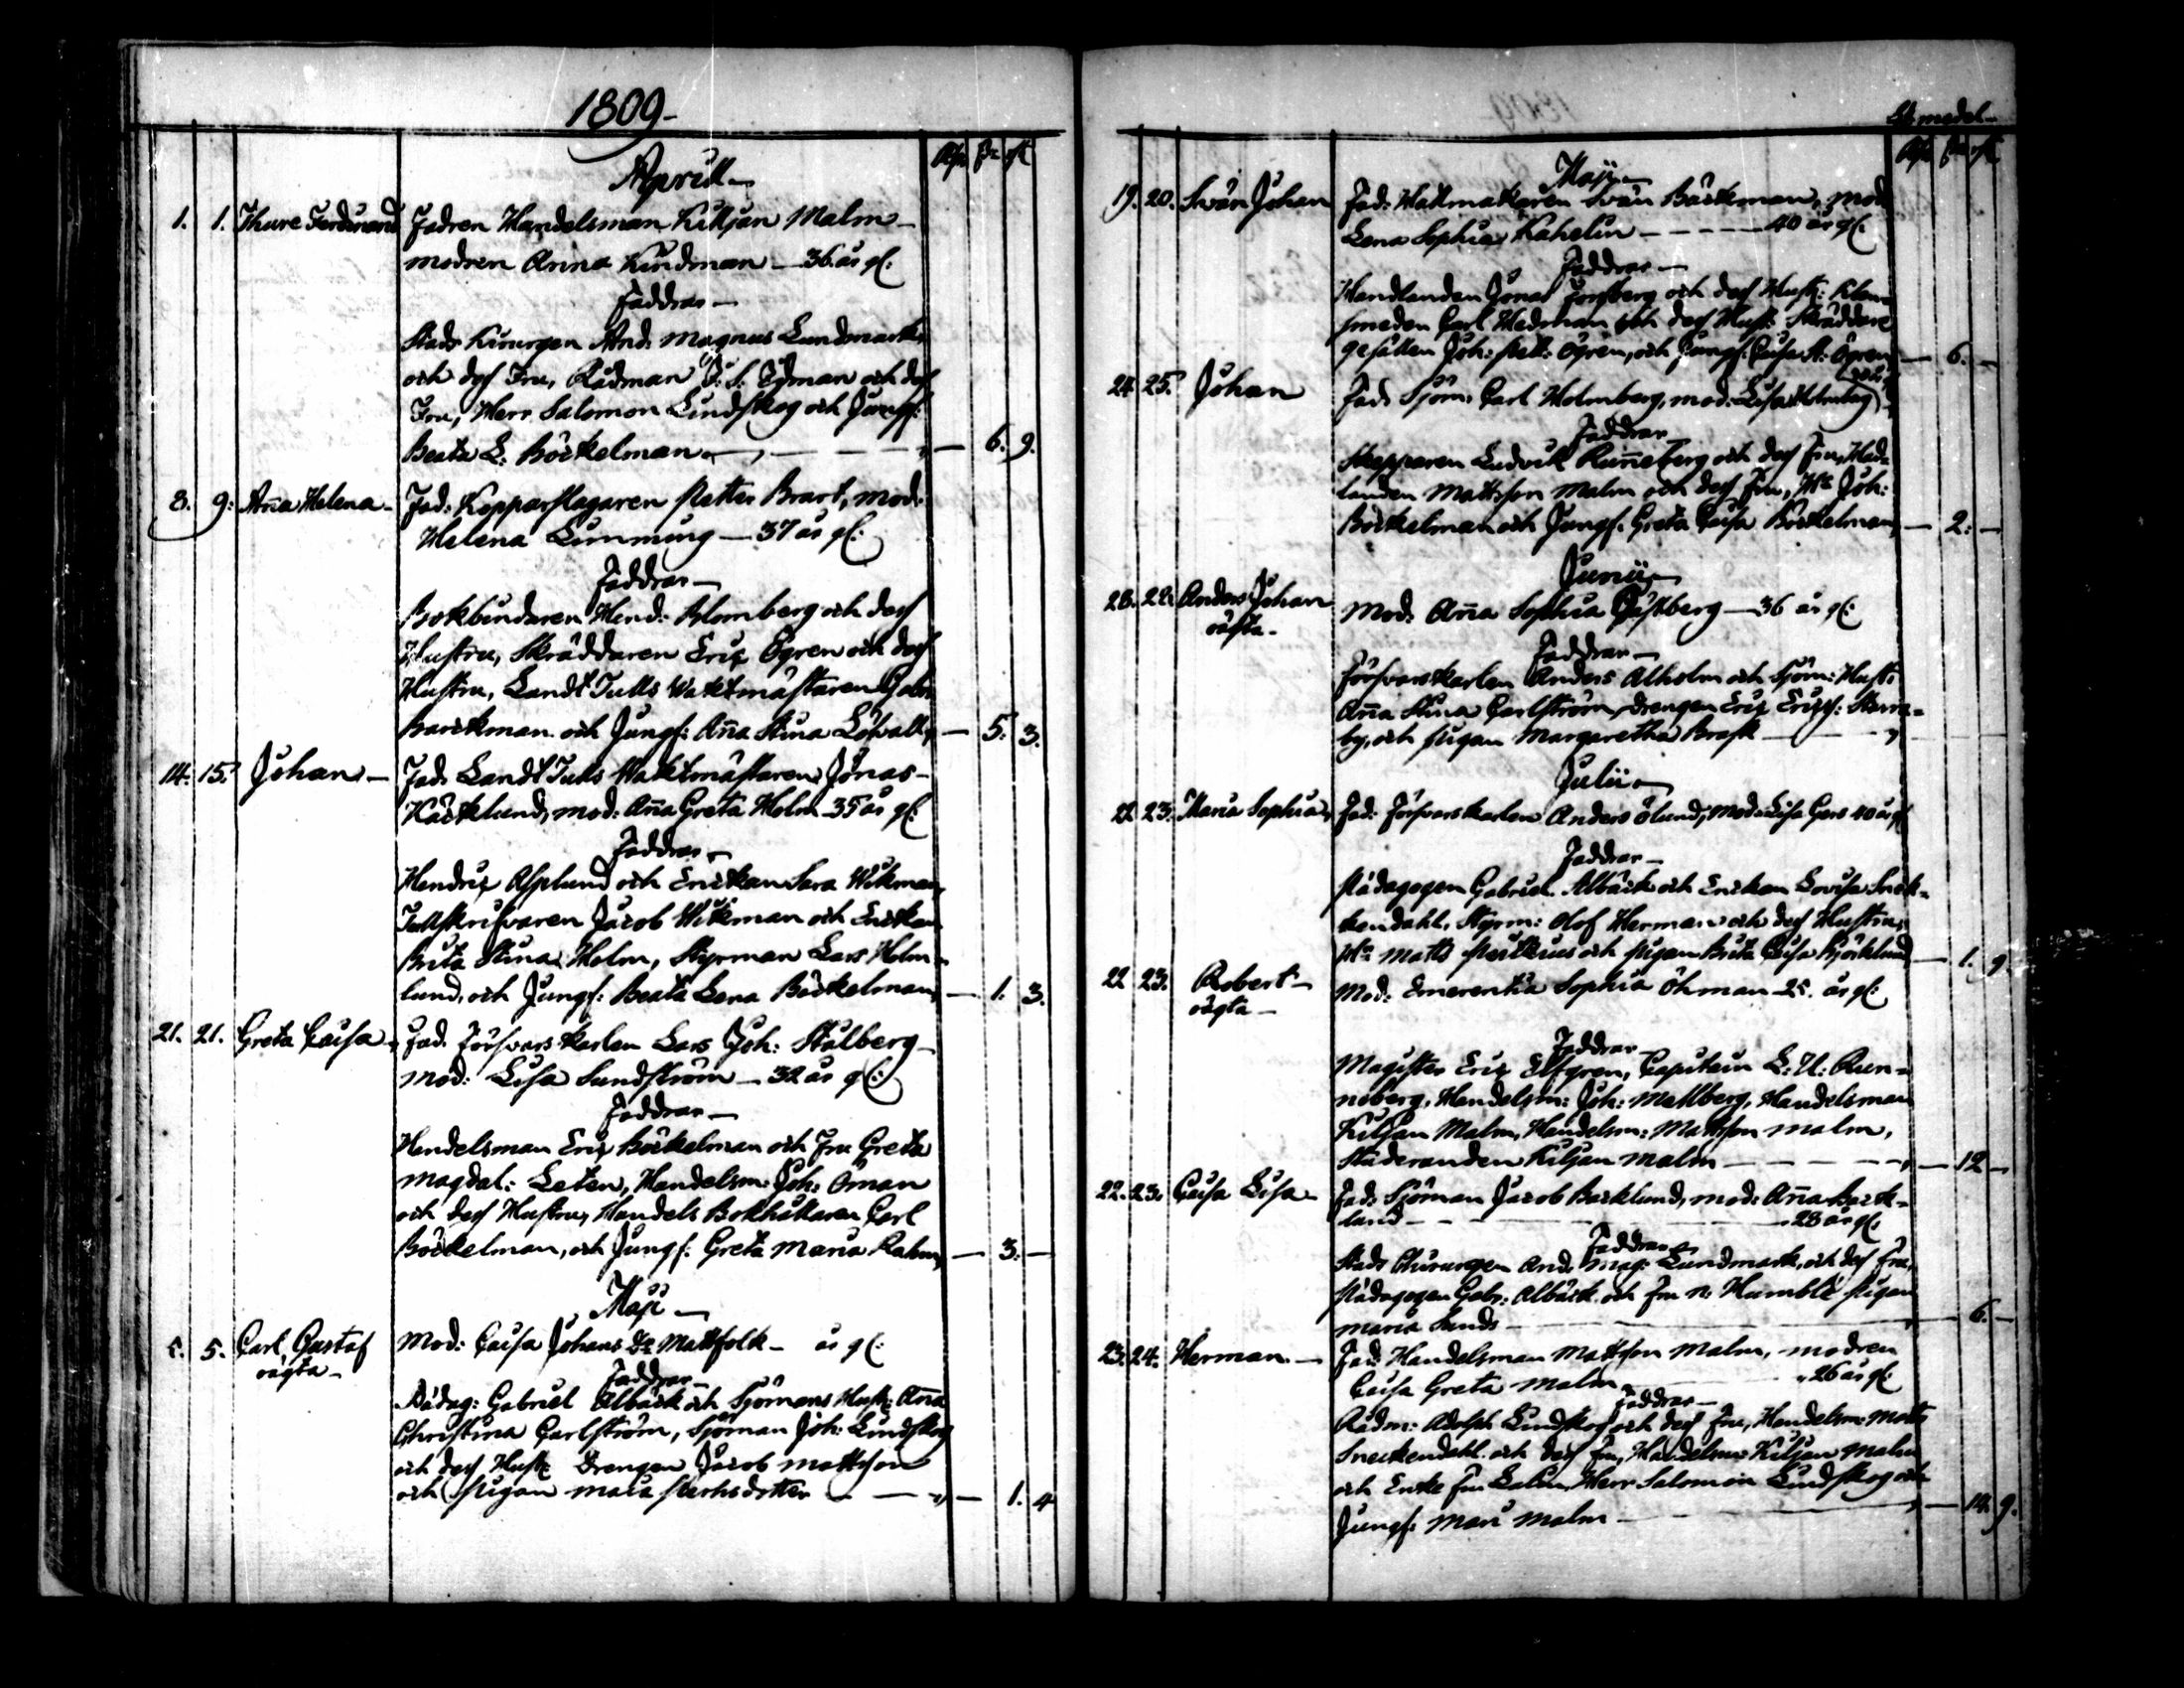 1809-
Aprill
1. 1. Thure Ferdinand Fadren Handelsman Killjan Malm
modren Anna Kindman - 36 år gl:
Faddrar -
Stads Kirurgen And: Magnus Lundmark,
och dess Fru, Rådman Edman och dess
Fru, Herr Salomon Lindskog och Jungf:
Beata L. Böckelman - 6. 9.
8. 9: Aña Helena - Fad: Kopparslagaren Petter Brart, mod:
Helena Limming - 37 år gl:
Faddrar -
Bokbindaren Hend: Blomberg och dess
Hustru, Skräddaren Eric Ögren och dess
Hustru, Landt Tulls Waktmästaren Gabr:
Barckman och Jungf: Aña Stina Löfvall, - 5. 3.
14. 15. Johan - Fad: Landt Tulls Waktmästaren Jonas
Käcklund, mod: Aña Greta Holm 35 år gl:
Faddrar -
Hendric Asplund och Enckan Sara Wikman,
Tullskrifvaren Jacob Wikman och Enckan
Brita Stina Holm, Styrman Lars Holm-
lund, och Jungf: Beata Lena Böckelman, - 1. 3.
21. 21. Greta Caisa - Fad: Försvarskarlen Lars Joh: Stålberg
mod: Lisa Sundström - 32 år gl:
Faddrar -
Handelsman Eric Böckelman och Fru Greta
Magdal: Leten, Handelsm: Joh: Öman
och dess Hustru, Handels Bokhållaren Carl
Böckelman, och Jungf: Greta Maria Rahm, - 3. -
Maji -
5. 5. Carl Gustaf Mod: Caisa Johans Dr Mattfolk - år gl:
oägta -
Faddrar -
Pädag: Gabriel Albäck och Sjömans Hust: Aña
Christina Carlström, Sjöman Joh: Lindskog
och dess Hust: Drengen Jacob Mattsson
och Pigan Maia Pehrsdotter - 1. 4
Ld. medel -
Maji -
19. 20. Svän Johan Fad: Hattmakaren Svän Bäckman, mod:
Lena Sophia Kahelin - 40 år gl:
Faddrar -
Handlanden Jonas Forsberg och dess Hust: Klen-
smeden Carl Hedman och dess Hust: Skräddare
gesällen Joh: Pett: Ögren, och Jungf: Caisa St: Ögren - 6. -
24 25. Johan Fad: Sjöm: Carl Holmberg, mod: Lisa Holmberg
Faddrar
Skepparen Ludvik Runeberg och dess Fru, Hand-
landen Mattsson Malm och dess Fru, Hr Joh:
Böckelman och Jungf: Greta Caisa Böckelman, - 2. -
Junii -
Anders Johan Mod: Aña Sophia - 36 år gl:
oägta -
Faddrar -
Försvarskarlen Anders Alholm och Sjöm: Hust:
Aña Stina Carlström, Drengen Eric Ericss:
by, och Pigan Margaretha Brask
Julii -
22 23. Maria Sophia Fad: Försvarskarlen Anders Ölund, mod: Lisa Gers 40 år gl
Faddrar -
Pädagogen Gabriel Albäck och Enckan Lovisa Snec-
kendahl, Styrm: Olof Herman och dess Hustru,
Hr Matts och Pigan Brita Caisa Björklund, - 1. 9.
22 23. Robert - Mod: Emerentia Sophia Öhman 25. år gl:
oägta -
Faddrar
Magister Eric Elfgren, Capitain L. U. Run-
neberg, Handelsm: Joh: Mellberg, Handelsman
Kiljan Malm, Handelsm: Mattsson Malm,
Studeranden Kiljan Malm - 12 -
22. 23. Caisa Lisa - Fad: Sjöman Jacob Backlund, mod: Aña Back-
lund - 28 år gl:
Faddrar
Stads Chirurgen And: Mag: Lundmark, och dess Fru,
Pädagogen Gabr: Albäck och Fru N. Humble Pigan
Maria Sunds - 6. -
23. 24. Herman - Fad: Handelsman Mattsson Malm, modren
Caisa Greta Malm - 26 år gl:
Faddrar -
Rådm: Adolph Lindskog och dess Fru, Handelsm: Matts
Sneckendahl och dess Fru, Handelsm: Kiljan Malm
och Encke Fru Calm, Herr Salomon Lindskog och
Jungf: Mari Malm - 14. 9.